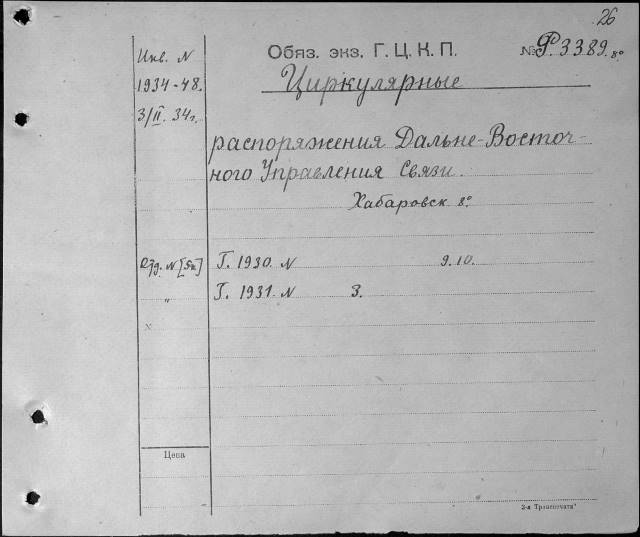 26
Инв. N
1934-48.
3/II. 34г.
Обяз. экз. Г. Ц. К. П.
№ Р. 3389. 8°
Циркулярные
распоряжения Дальне-Восточ-
ного Управления Связи.
Хабаровск 8°.
Г. 1930. N 9. 10.
„ Г. 1931. N 3.
x
Цена